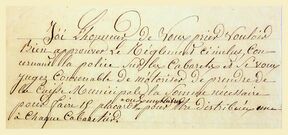 J'ai Lhonneur de Vous prier Vouloir
Bien approuver Le Réglement ci inclus, Con
cernant la police sur les Cabarets et Si vous
jugez Convenable de m'otoriser de prendre de
la Caisse Municipale la Somme nécessaire
pour faire 15 placards ou exemplaires pour être distribuée une
à Chaque Cabaretier